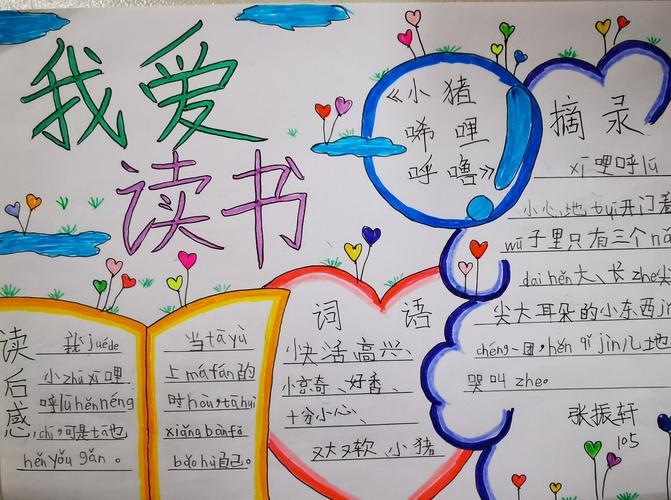 我爱
读书
《小猪
唏哩
呼噜》
摘录
xī哩呼lū
小心地 tuī开门看
wū子里只有三个nǎ
dai hěn大、长 zhe
尖大耳朵的小东西jǐn
chéng一团,hěn qī jīn儿地
哭叫 zhe。
张振轩
105
词语
快活、高兴、
惊奇、好香、
十分小心、
又大又软、小猪
读后感
我juéde
小zhū xī哩
呼lū hěn néng
chī,可是tā也
hěn yǒu gǎn。
当tā yù
上má fán的
时hòu,tā huì
xiǎng bàn fǎ
bǎo hù自己。